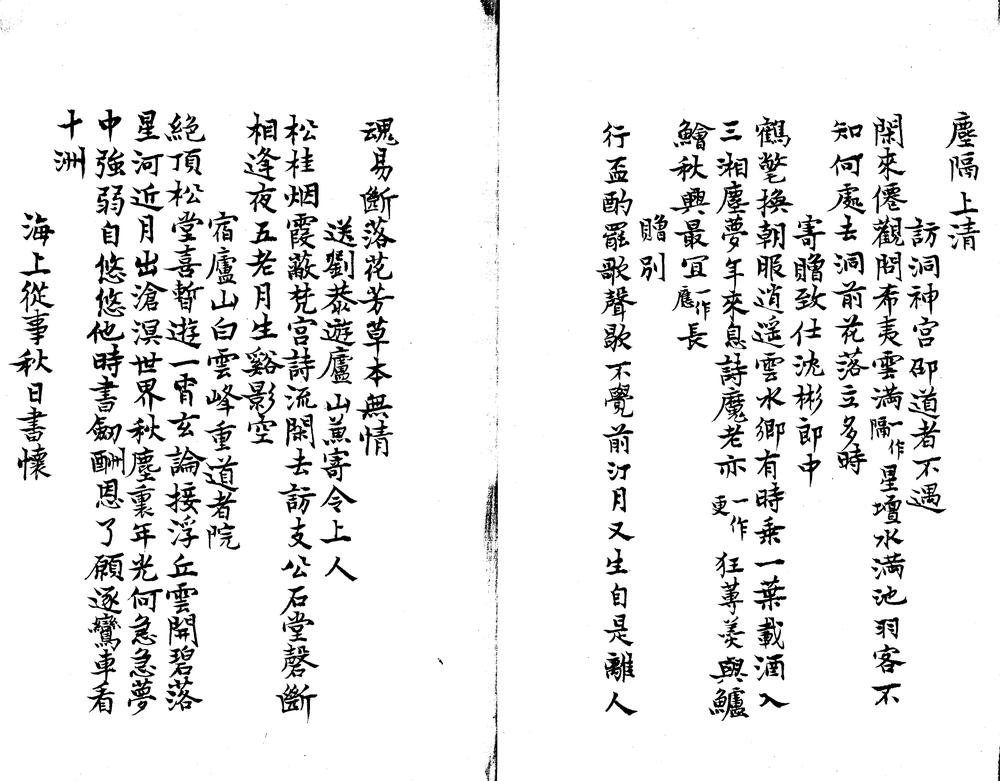 塵隔上清
訪洞神宮邵道者不遇
閑來僊觀問希夷雲滿一作隔星壇水滿池羽客不
知何處去洞前花落立多時
寄贈致仕沈彬郎中
鶴氅換朝服逍遥雲水鄉有時乗一葉載酒入
三湘塵夢年來息詩魔老亦一作更狂蓴羹與鱸
鱠秋興最冝一作應長
贈別
行盃酌罷歌聲歇不覺前汀月又生自是離人
魂易斷落花芳草本無情
送劉恭遊廬山兼寄令上人
松桂烟霞蔽梵宫詩流閑去訪支公石堂磬斷
相逢夜五老月生谿影空
宿廬山白雲峰重道者院
絕頂松堂喜暫遊一宵玄論接浮丘雲開碧落
星河近月出滄溟世界秋塵裏年光何急急夢
中強弱自悠悠他時書劒酬恩了願逐鸞車看
十洲
海上從事秋日書懷